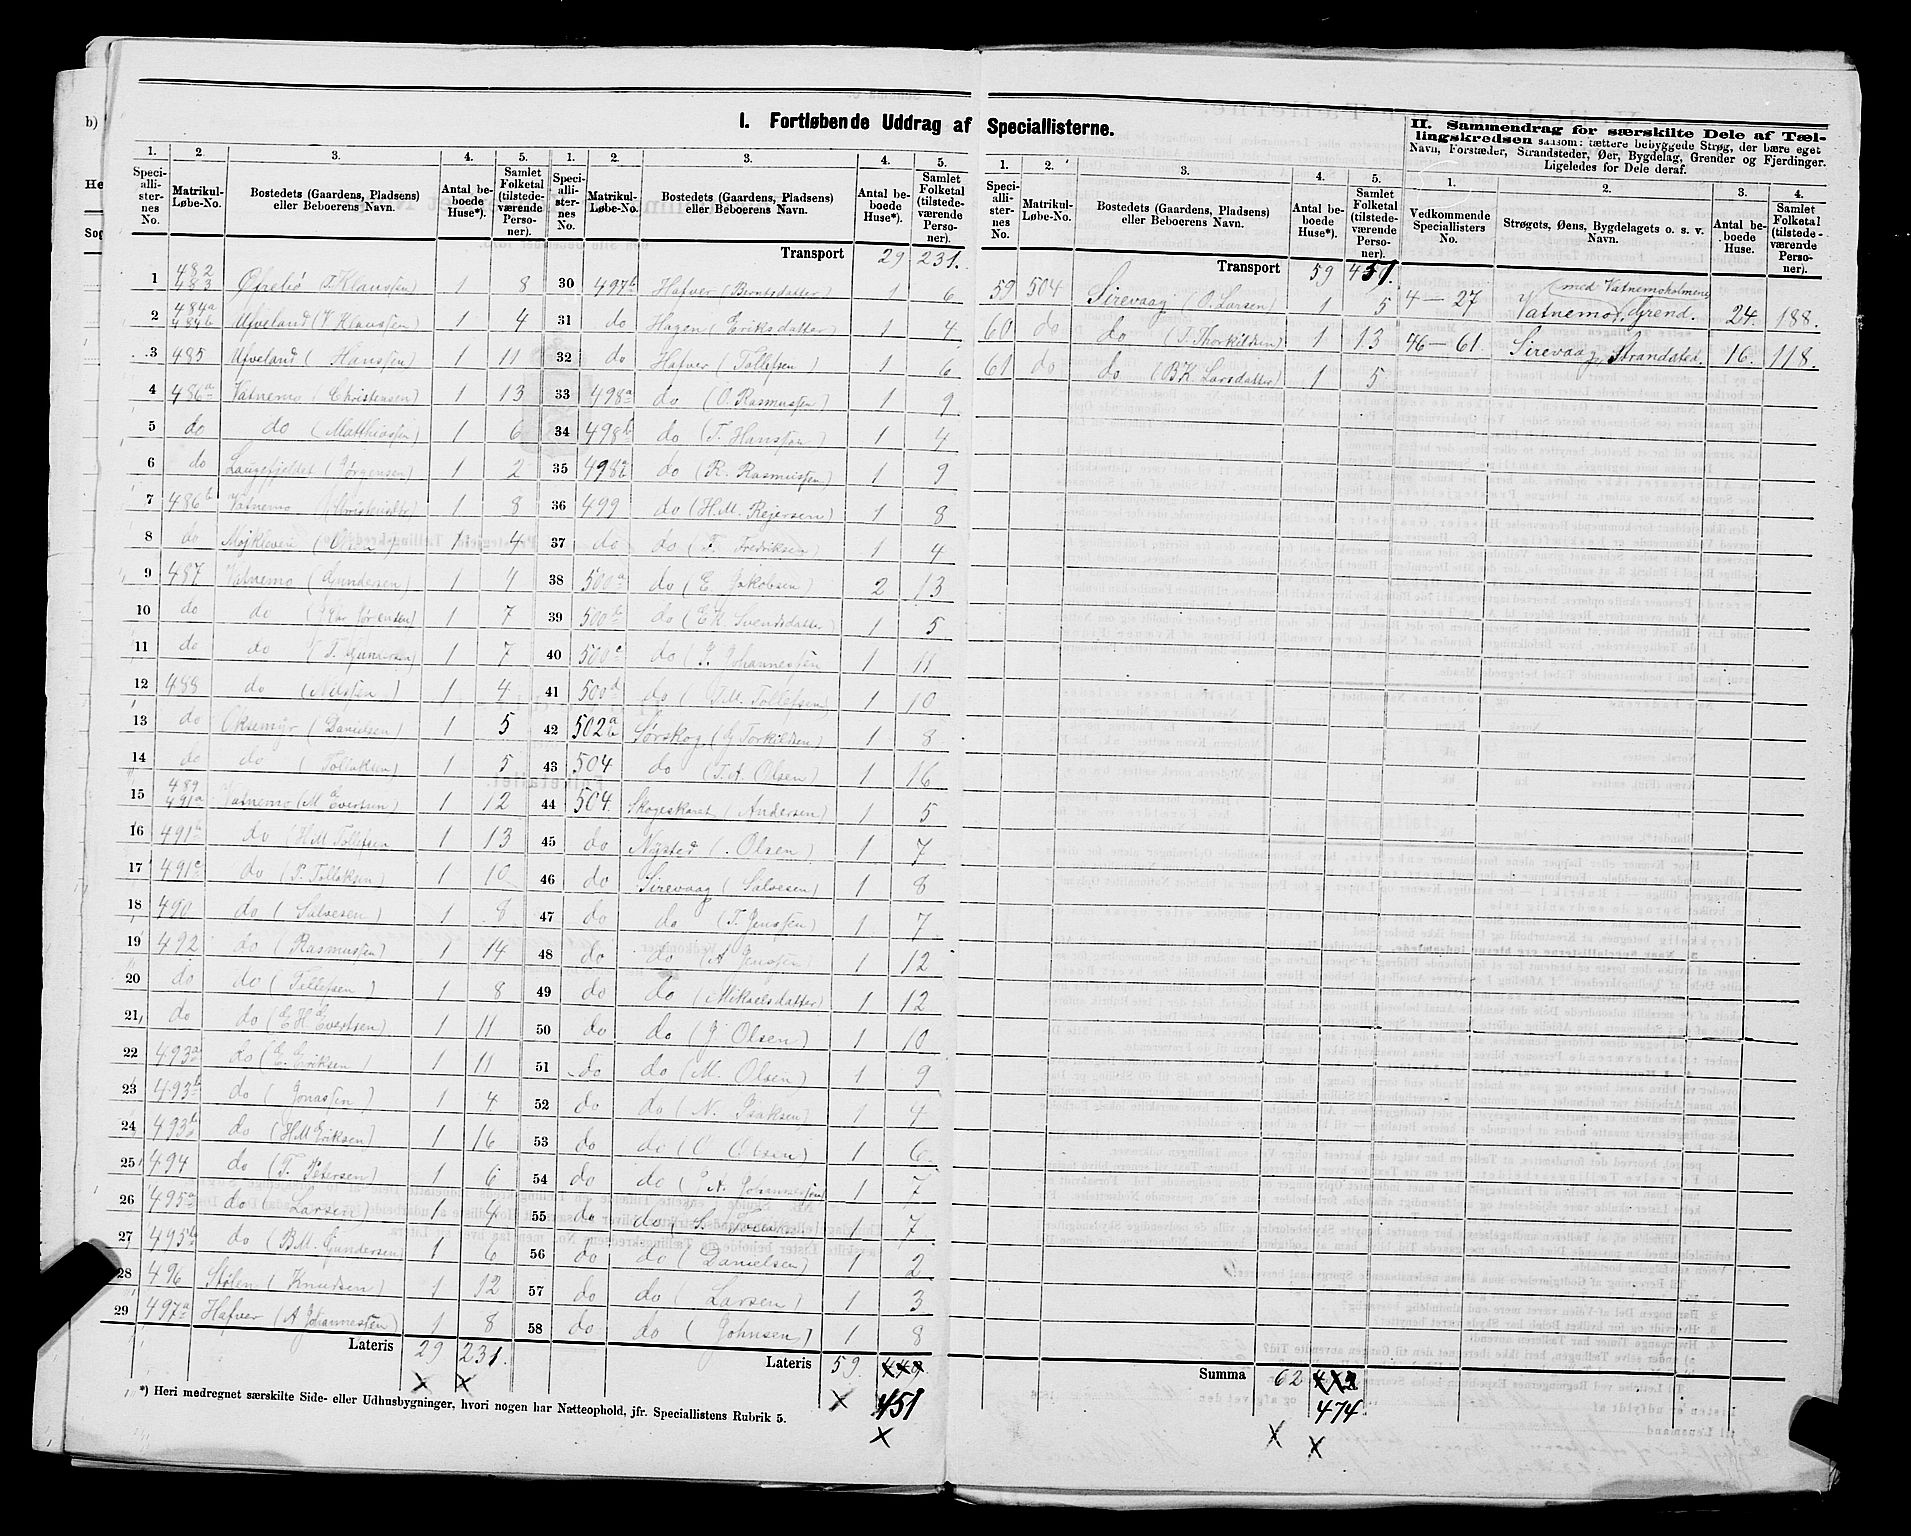 I. Fortløbende Uddrag af Speciallisterne.
1. 2. 3. 4. 5.
Speciallisternes No. Matrikul-Løbe-No. Bostedets (Gaardens, Pladsens) eller Beboerens Navn. Antal beboede Huse*). Samlet Folketal (tilstedeværende Personer).
1 482 483 Øfrebö (T. Klaussen) 1 8
2 484a 484b Ufveland (V Klaussen) 1 4
3 485 Ufveland (Hanssen) 1 11
4 486a Vatnemo (Christensen) 1 13
5 do do (Matthiassen) 1 6
6 do Laugefjeldet (Jørgensen) 1 2
7 486b Vatnemo 1 8
8 do Mojkleven 1 4
9 487 Vatnemo (Gundersen) 1 4
10 do do 1 7
11 do do (T. Gundersen) 1 7
12 488 do (Nilssen) 1 4
13 do Oksemyr (Danielsen) 1 5
14 do do (Tollaksen) 1 5
15 489 491a Vatnemo 1 12
16 491 do (H M Tollefsen 1 13
17 491c do (P. Tollaksen) 1 10
18 490 do (Salvesen) 1 8
19 492 do (Rasmussen) 1 14
20 do do (Tellefsen) 1 8
21 do do (E H Evertsen) 1 11
22 493a do (E. Eriksen) 1 11
23 493b do (Jonassen) 1 4
24 493b do (H M Eriksen) 1 16
25 494 do (T. Petersen) 1 6
26 495a do (Larsen) 1 4
27 495b do (B M. Gundersen) 1 6
28 496 Stølen (Knudsen) 1 12
29 497a Hafver (A Johannessen) 1 8
Lateris 29 231.
*) Heri medregnet særskilte Side- eller Udhusbygninger, hvori nogen har Natteophold, jfr. Speciallistens Rubrik 5.
1. 2. 3. 4. 5.
Speciallisternes No. Matrikul-Løbe-No. Bostedets (Gaardens, Pladsens) eller Beboerens Navn. Antal beboede Huse*). Samlet Folketal (tilstedeværende Personer).
Transport 29 231.
30 497b Hafver (Berntsdatter) 1 6
31 do Hagen (Eriksdatter) 1 4
32 do Hafver (Tollefsen) 1 6
33 498a do (O. Rasmussen) 1 9
34 498b do (T. Hanssen) 1 4
35 498b do (R. Rasmussen) 1 9
36 499 do (H. M. Rejersen) 1 8
37 do do (T. Fredriksen) 1 4
38 500a do (E. Jakobsen) 2 13
39 500b do (E K. Svendsdatter) 1 5
40 500c do (J. Johannessen 1 11
41 500d do (T. M. Tollefsen) 1 10
42 502a b Sørskog (G Torkildsen) 1 8
43 504 do (T. A. Olsen) 1 16
44 504. Skogeskaret (Andersen) 1 5
45 do Nysted (Olsen) 1 7
46 do Sirevaag (Salvesen) 1 8
47 do do (T. Jenssen) 1 7
48 do do (A Jenssen 1 12
49 do do (Mikaelsdatter) 1 12
50 do do (J Olsen) 1 10
51 do do (M. Olsen) 1 9
52 do do (N. Isaksen) 1 4
53 do do (O Olsen) 1 6
54 do do (J A. Johannessen) 1 7
55 do do 1 7
56 do do (Danielsen) 1 2
57 do do (Larsen) 1 3
58 do do (Johnsen) 1 8
Lateris 59. 449.
451
1. 2. 3. 4. 5.
Speciallisternes No. Matrikul-Løbe-No. Bostedets (Gaardens, Pladsens) eller Beboerens Navn. Antal beboede Huse*). Samlet Folketal (tilstedeværende Personer).
Transport 59 451.
59 504 Sirevaag (O. Larsen) 1 5
60 do do (T. Thorkildsen) 1 13
61 do do (B K. Larsdatter) 1 5
Summa 62
474
II. Sammendrag for særskilte Dele af Tællingskredsen saasom: tættere bebyggede Strøg, der bære eget Navn, Forstæder, Strandsteder, Øer, Bygdelag, Grender og Fjerdinger. Ligeledes for Dele deraf.
1. 2. 3. 4.
Vedkommende Speciallisters No. Strøgets, Øens, Bygdelagets o. s. v. Navn. Antal beboede Huse. Samlet Folketal (tilstedeværende Personer).
med Vatnemoholmene
4 — 27 Vatnemo, Grend. 24. 188.
46 — 61. Sirevaag, Strandsted. 16. 118.